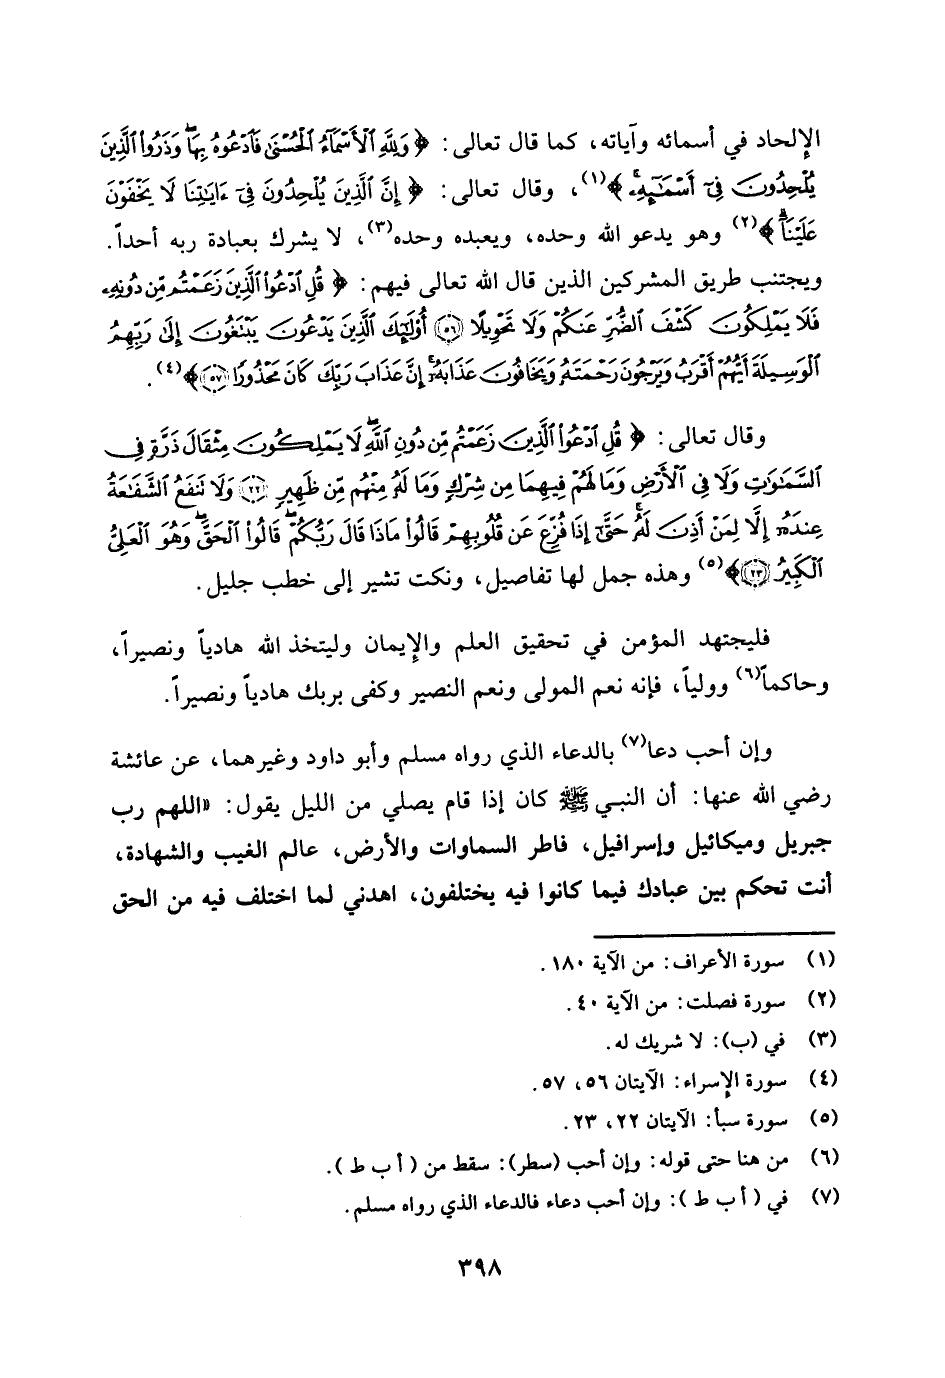 الإلحاد في أسمائه وآياته، كما قال تعالى: ﴿ وَلِلَّهِ الْأَسْمَاءُ الْحُسْنَىٰ فَادْعُوهُ بِهَا ۖ وَذَرُوا الَّذِينَ
يُلْحِدُونَ فِي أَسْمَائِهِ ۚ ﴾(١)، وقال تعالى: ﴿ إِنَّ الَّذِينَ يُلْحِدُونَ فِي ءَايَاتِنَا لَا يَخْفَوْنَ
عَلَيْنَا ۗ ﴾(٢) وهو يدعو الله وحده، ويعبده وحده(٣)، لا يشرك بعبادة ربه أحداً.
ويجتنب طريق المشركين الذين قال الله تعالى فيهم: ﴿ قُلِ ادْعُوا الَّذِينَ زَعَمْتُم مِّن دُونِهِ
فَلَا يَمْلِكُونَ كَشْفَ الضُّرِّ عَنكُمْ وَلَا تَحْوِيلًا ۝٥٦ أُولَٰئِكَ الَّذِينَ يَدْعُونَ يَبْتَغُونَ إِلَىٰ رَبِّهِمُ
الْوَسِيلَةَ أَيُّهُمْ أَقْرَبُ وَيَرْجُونَ رَحْمَتَهُ وَيَخَافُونَ عَذَابَهُ ۚ إِنَّ عَذَابَ رَبِّكَ كَانَ مَحْذُورًا ۝٥٧ ﴾(٤).
وقال تعالى: ﴿ قُلِ ادْعُوا الَّذِينَ زَعَمْتُم مِّن دُونِ اللَّهِ ۖ لَا يَمْلِكُونَ مِثْقَالَ ذَرَّةٍ فِي
السَّمَاوَاتِ وَلَا فِي الْأَرْضِ وَمَا لَهُمْ فِيهِمَا مِن شِرْكٍ وَمَا لَهُ مِنْهُم مِّن ظَهِيرٍ ۝٢٢ وَلَا تَنفَعُ الشَّفَاعَةُ
عِندَهُ إِلَّا لِمَنْ أَذِنَ لَهُ ۚ حَتَّىٰ إِذَا فُزِّعَ عَن قُلُوبِهِمْ قَالُوا مَاذَا قَالَ رَبُّكُمْ ۖ قَالُوا الْحَقَّ ۖ وَهُوَ الْعَلِيُّ
الْكَبِيرُ ۝٢٣ ﴾(٥) وهذه جمل لها تفاصيل، ونكت تشير إلى خطب جليل.
فليجتهد المؤمن في تحقيق العلم والإيمان وليتخذ الله هادياً ونصيراً،
وحاكماً(٦) وولياً، فإنه نعم المولى ونعم النصير وكفى بربك هادياً ونصيراً.
وإن أحب دعا(٧) بالدعاء الذي رواه مسلم وأبو داود وغيرهما، عن عائشة
رضي الله عنها: أن النبي ﷺ كان إذا قام يصلي من الليل يقول: «اللهم رب
جبريل وميكائيل وإسرافيل، فاطر السماوات والأرض، عالم الغيب والشهادة،
أنت تحكم بين عبادك فيما كانوا فيه يختلفون، اهدني لما اختلف فيه من الحق
(١) سورة الأعراف: من الآية ١٨٠.
(٢) سورة فصلت: من الآية ٤٠.
(٣) في (ب): لا شريك له.
(٤) سورة الإسراء: الآيتان ٥٦، ٥٧.
(٥) سورة سبأ: الآيتان ٢٢، ٢٣.
(٦) من هنا حتى قوله: وإن أحب (سطر): سقط من ( أ ب ط ).
(٧) في ( أ ب ط ): وإن أحب دعاء فالدعاء الذي رواه مسلم.
٣٩٨